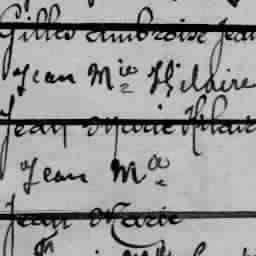 Gilles Ambroise Jean
Jean Mie Hilaire
Jean Marie Hilair
Jean Ma
Jean Marie